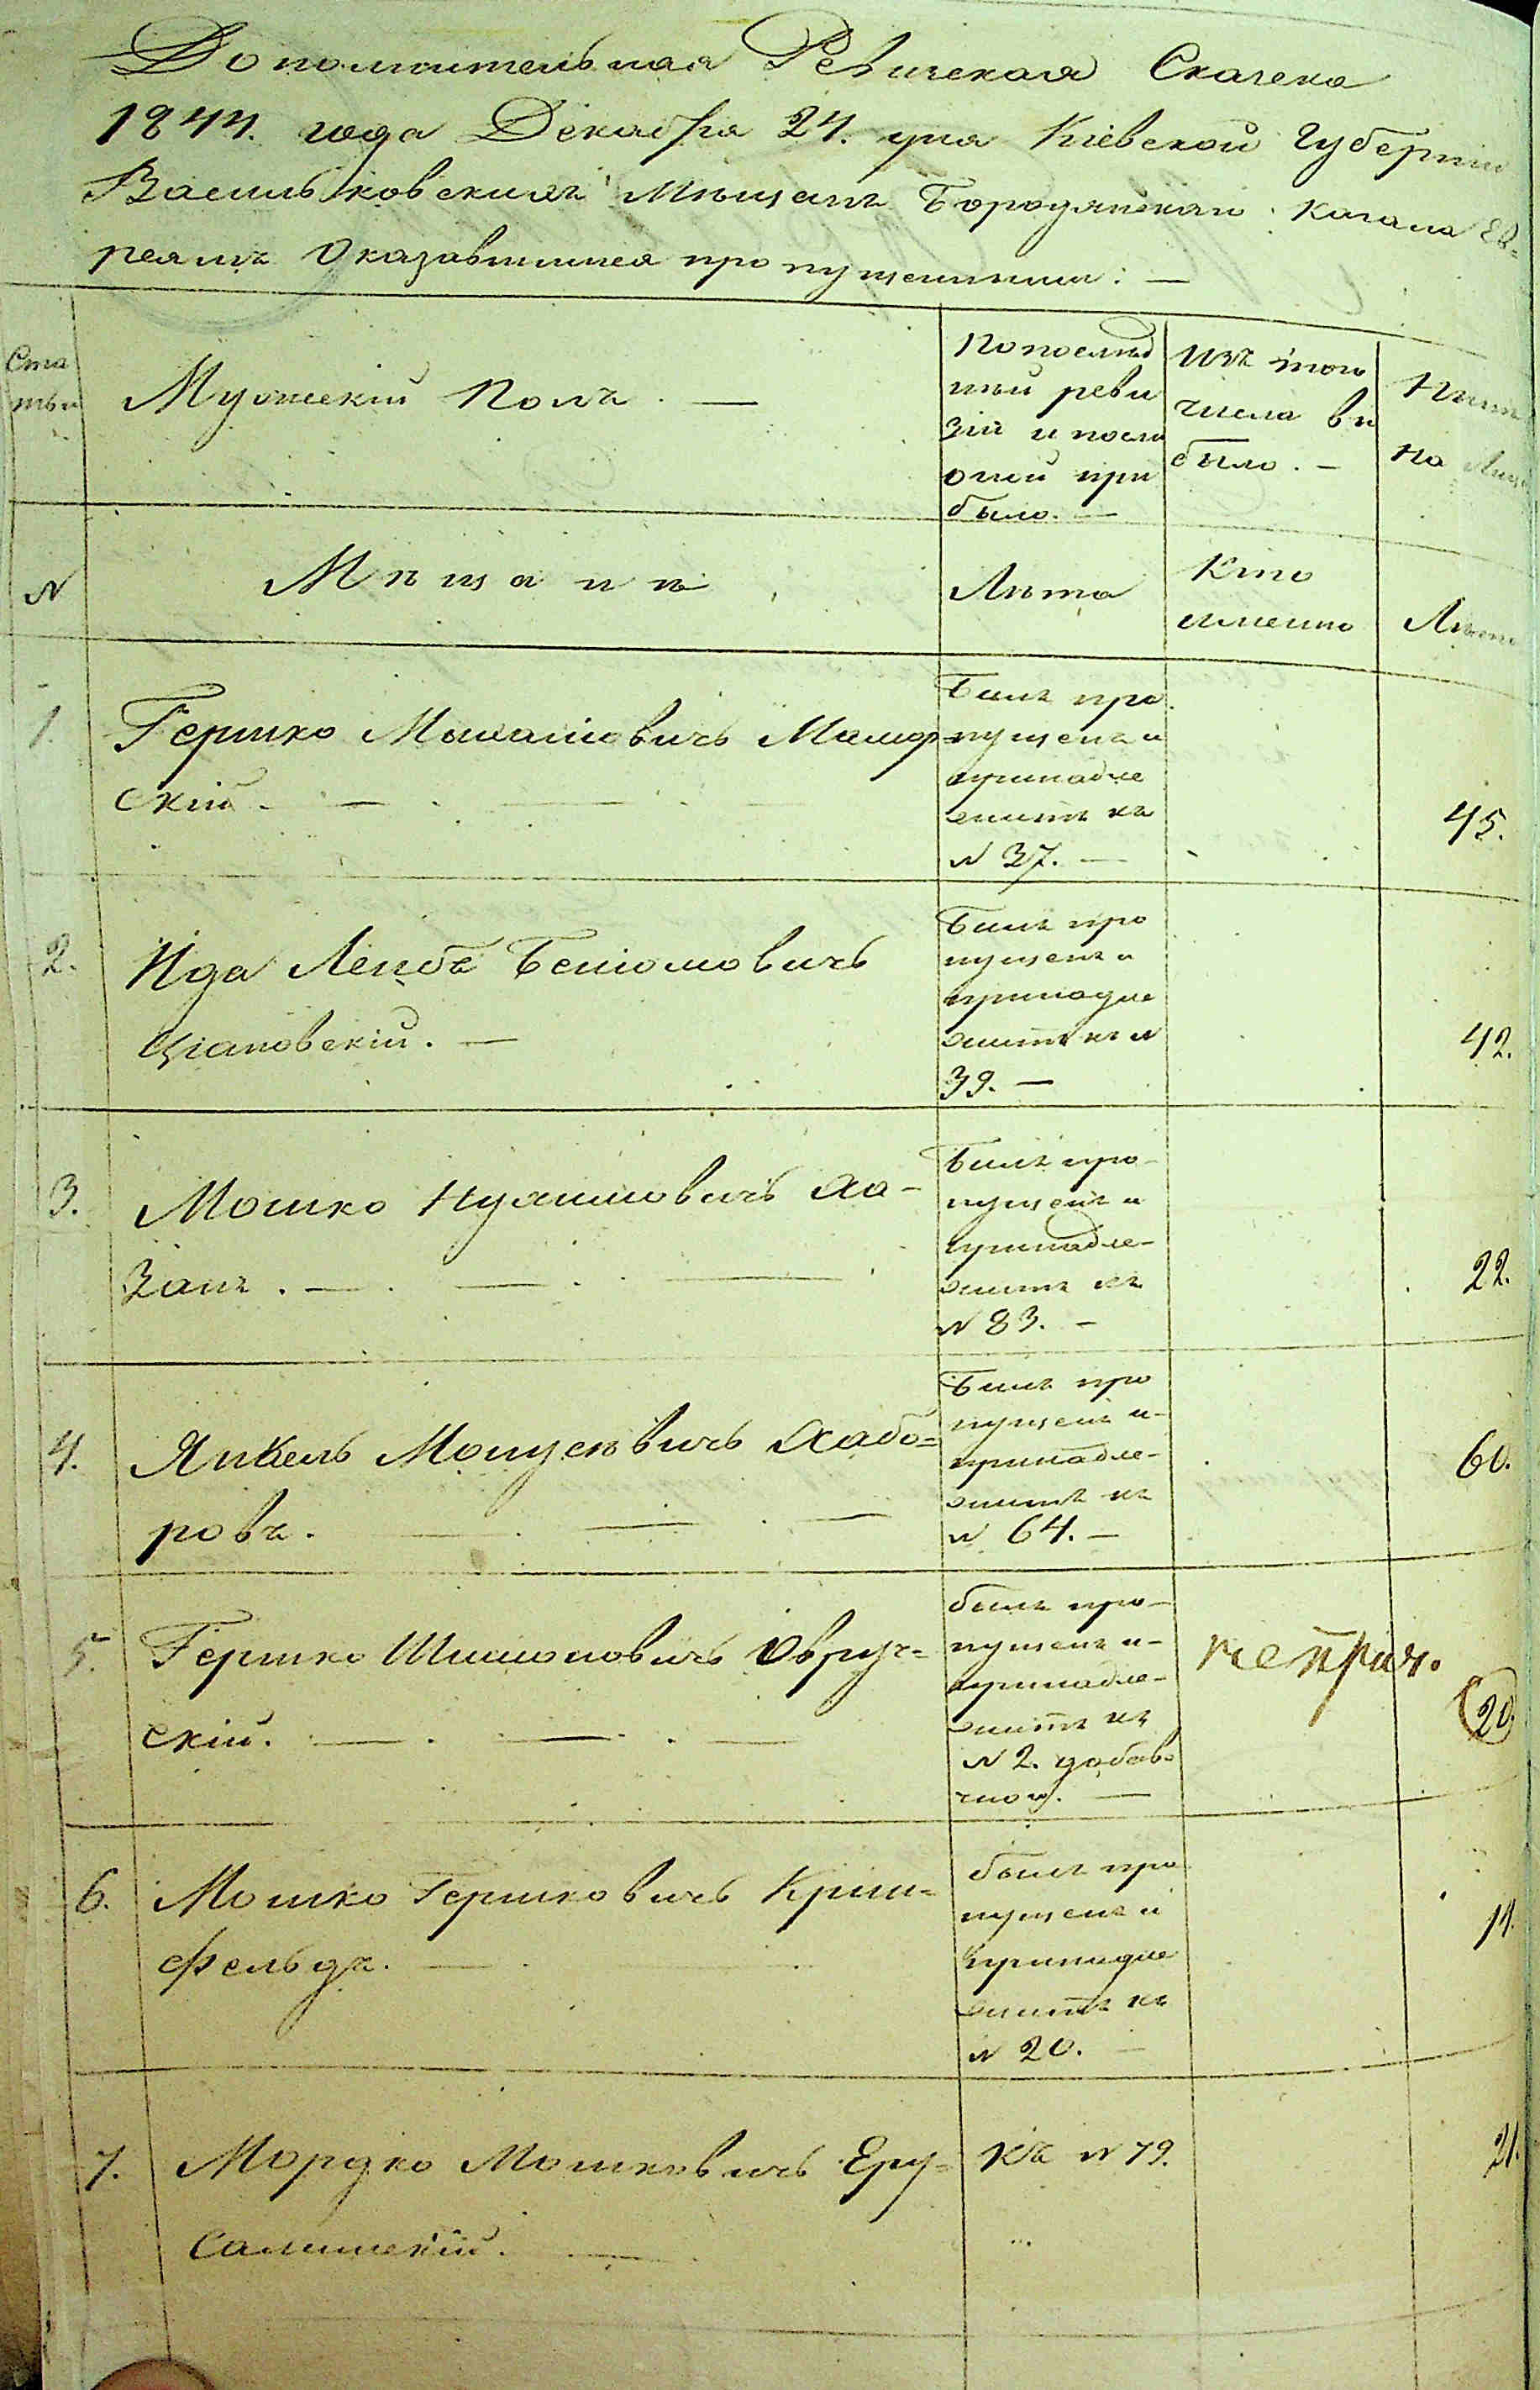 Дополнительная Ревизская Сказка
1844. года Декабря 24. дня Кіевской Губерніи
Васильковскихъ Мѣщанъ Бородянскаго Кагала Ев=
реямъ Оказавшимся пропущенными: —
Ста
тьи
Мужескій Полъ. —
По послѣд
ней реви
зіи и посли
оной при
было. —
Изъ того
числа вы
было. —
Нынѣ
На Лицо
N
Мѣщанѣ
Лѣта
Кто
именно
Лѣта
1.
Гершко
скій.
Былъ про
пущенъ и
принадле
житъ къ
N 37. —
45.
2.
Ида Лейбъ Беніомовичъ
Ціановскій. —
Былъ про
пущенъ и
принадле
житъ къ N
39. —
42.
3.
Мошко Нухимовичъ Ха-
занъ. —
Былъ про-
пущенъ и
принадле-
житъ къ
N 83. —
22.
4.
Янкель Мошковичъ Хабо=
ровъ. —
Былъ про
пущенъ и-
принадле-
житъ къ
N 64. —
60.
5.
Гершко Шимоновичъ Овруч=
скій. —
былъ про-
пущенъ и-
принадле-
житъ къ
N 2. добав-
чному. —
не прич.
20
6.
Мошко Гершковичъ Криш=
фельдъ. —
былъ про
пущенъ и
принадле
житъ къ
N 20. —
7.
Мордко Мошковичъ Еру=
салимскій. —
Къ N 79.
21.